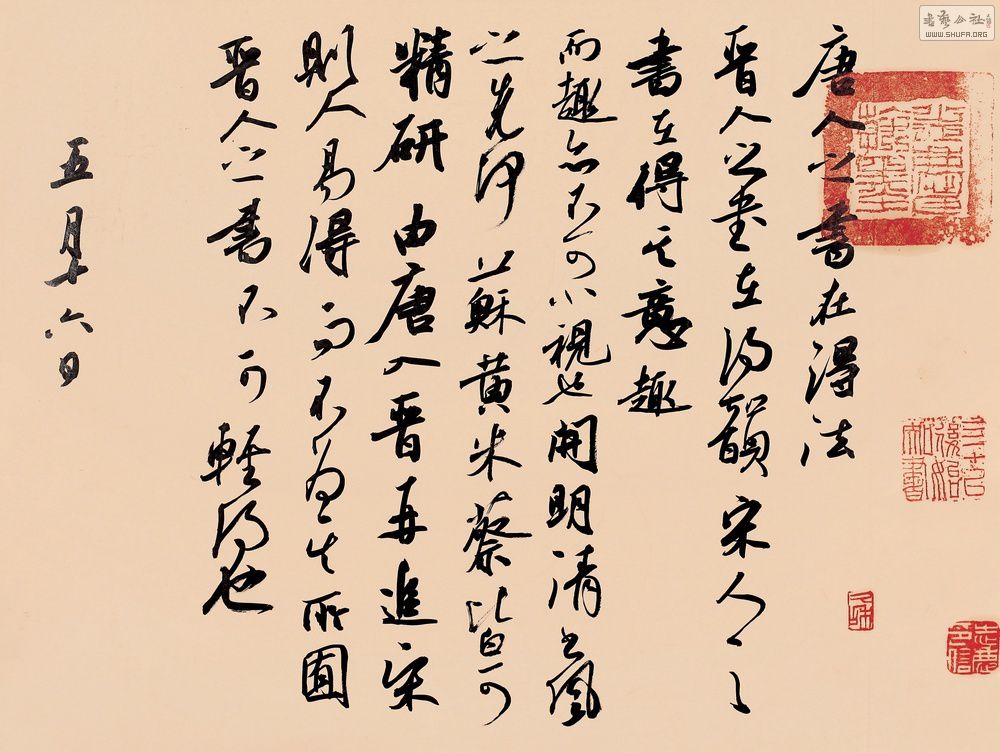 唐人之書在得法
晋人之書在得韻宋人之
書在得其意趣
而趣亦不可小視也開明清書風
之先河蘇黄米蔡皆可
精研由唐入晋再追宋
則人易得而不為其所囿
晋人之書不可輕得也
五月十六日
書藝公社
WWW.SHUFA.ORG